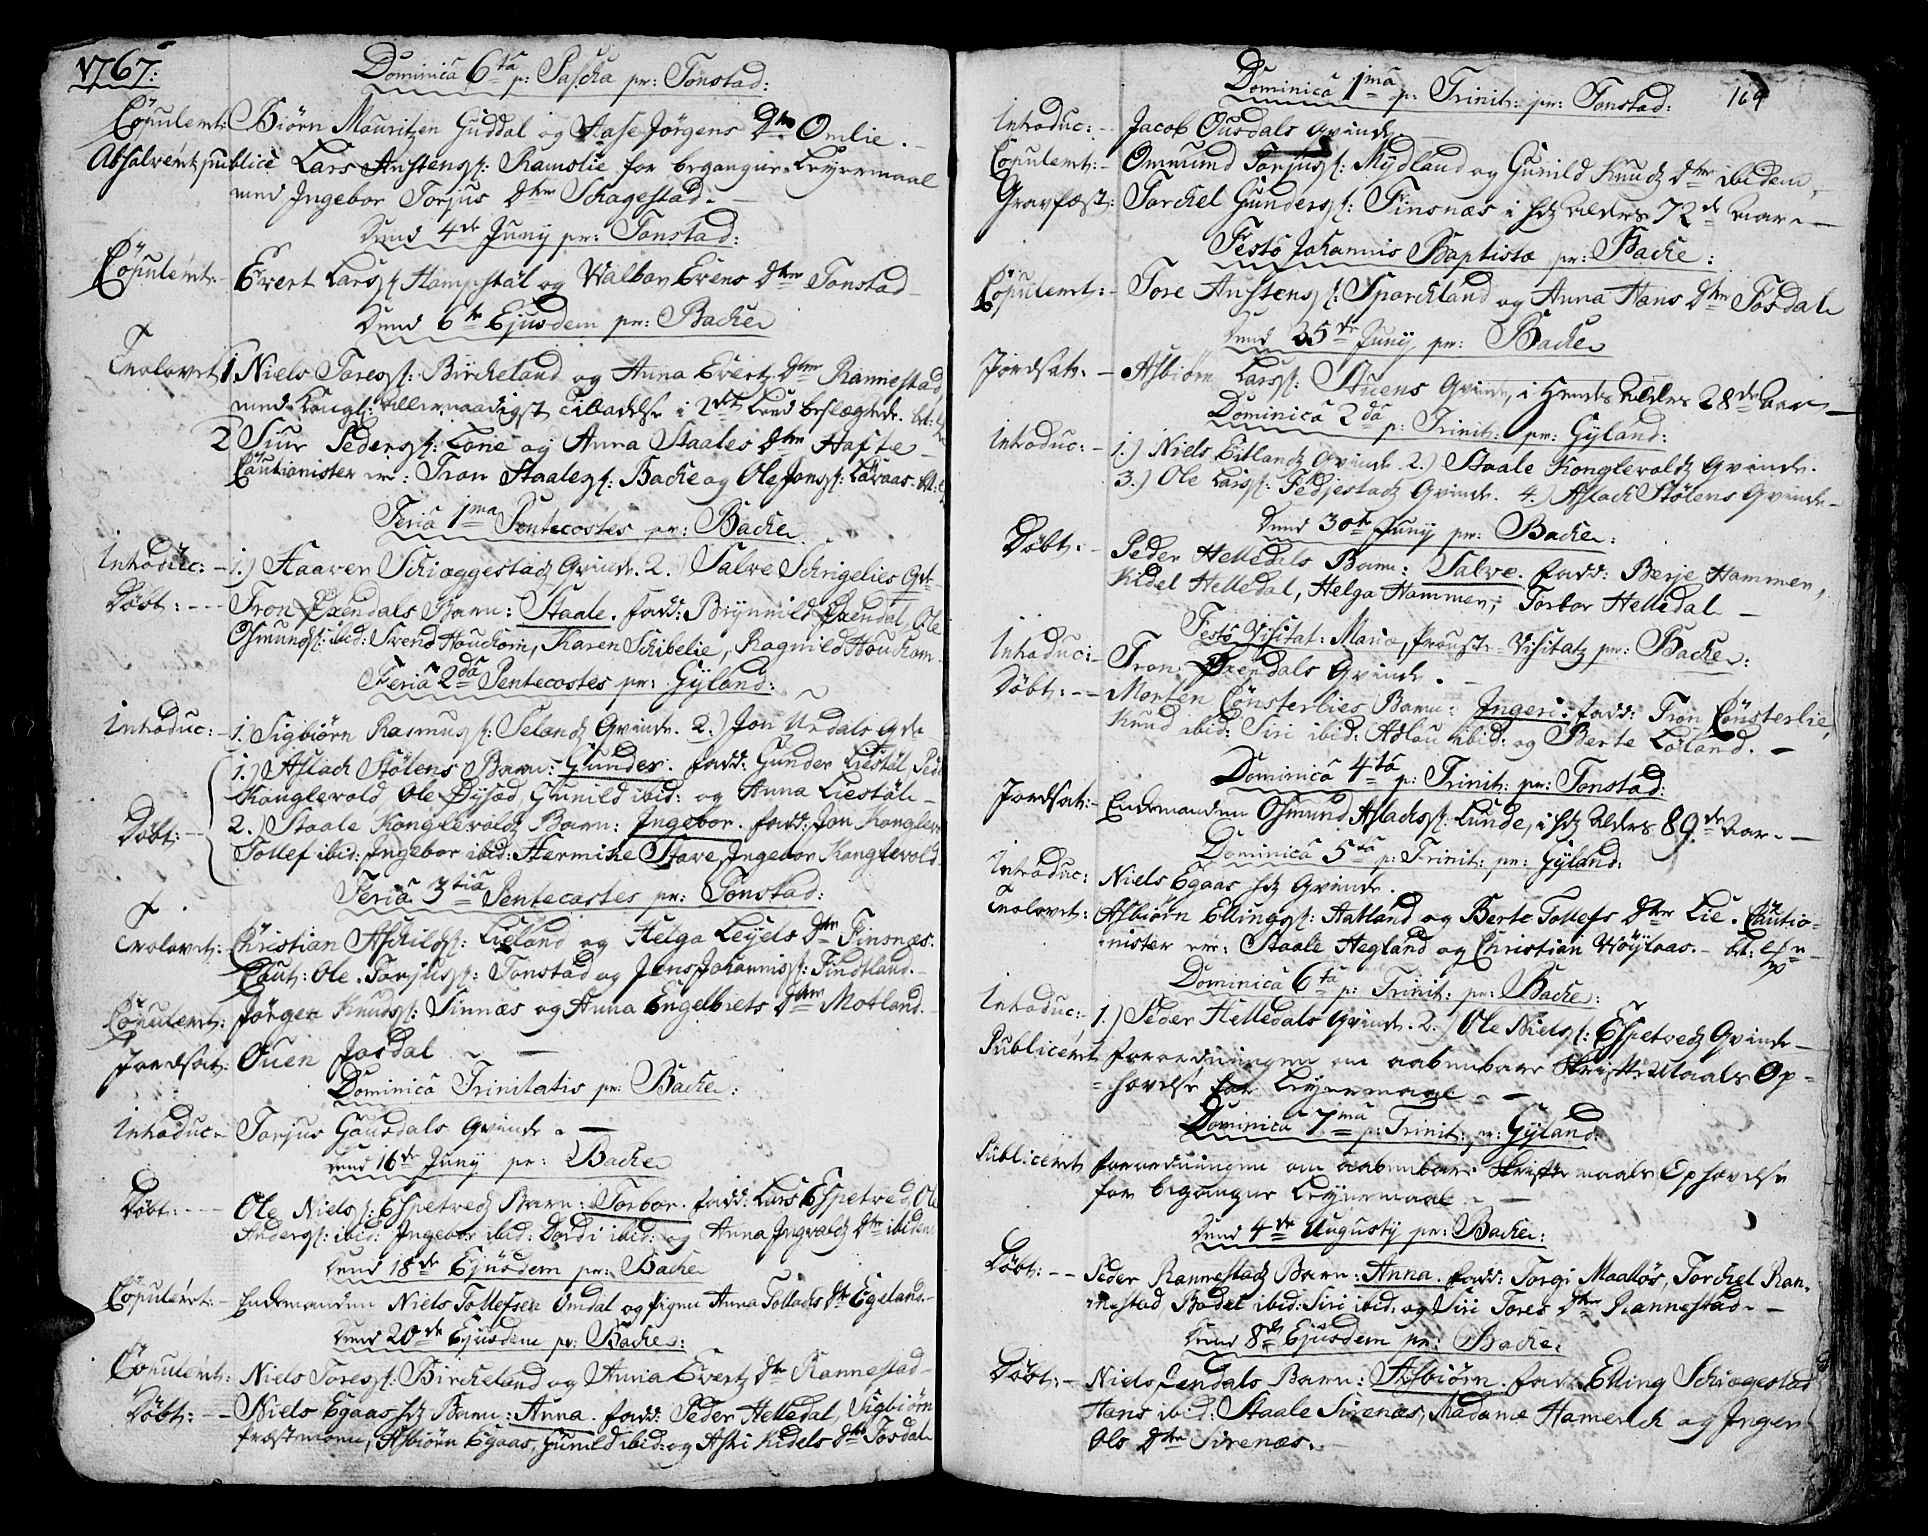 1767:
Dominica 6ta p: Pascha pr: Tonstad:
Copuleret: Biørn Mauritzen Guddal og Aase Jørgens Dtr Omlie.
Absolveret publice Lars Austens: Ramslie for begangne Leyermaal
med Ingebor Torjus Dtr Schagestad.
Dend 4de Juny pr: Tonstad:
Copuleret: Evert Lars Hampstøl og Walbor Evens Dtr Tonstad
Dend 6te Ejusdem pr: Backe
Trolovet 1. Niels Tores: Birckeland og Anna Evertz Dtr Rannestad
med Kongl: allernaadigst Tilladelse i 2det Leed beslægtede.
2 Siur Peders: Tone og Anna Staales Dtr Hafte
Cautionister er: Tron Staales: Backe og Ole Jons: Løvaas.
Feria 1ma Pentecostes pr: Backe
Introduc: 1.) Haaver Schiæggestad Qvinde. 2. Salve Schrigelies Qv
Døbt: Tron Øxendals Barn: Staale. fadd: Brynnild Øxendal, Ole
Osmunds: ibid: Svend Houckom, Karen Schibelie, Ragnild Houkom
Feria 2da Pentecostes pr: Gyland:
Introduc: 1. Sigbiørn Rasmus: Selands Qvinde. 2.) Jon Urdals Qvde
1.) Aslach Stølens Barn: Gunder. fadd: Gunder Liestøl, Peder
Konglevold, Ole Dysod, Gunild ibid: og Anna Liestøl
Døbt: 2.) Staale Konglevolds Barn: Ingebor. fadd: Jon Konglev
Tollef ibid: Ingebor ibid: Hermike Stave, Ingebor Konglevold
Feria 3tia Pentecostes pr: Tonstad:
Trolovet: Christian Aschilds: Lieland og Helga Leyels Dtr Finsnæs.
Caut: Ole Torjus: Tonstad og Jens Johannis: Findtland.
Copuleret: Jørgen Knuds: Sinnæs og Anna Engelbrets Dtr Motland.
Jordsat: Ouen Josdal
Dominica Trinitatis pr: Backe:
Introduc. Torjus Gousdals Qvinde.
Dend 16de Juny pr: Backe
Døbt: Ole Niels: Espetveds Barn: Torbor. fadd: Lars Espetved, Ole
Anders: ibid: Ingebor ibid: Dordi ibid: og Anna Ingvalds Dtr ibidem
Dend 18de Ejusdem pr: Backe
Copuleret: Enkemanden Niels Tollefsen Omdal og pigen Anna Tollachs Dtr Egeland.
Dend 20de Ejusdem pr: Backe:
Copuleret: Niels Tores: Birckeland og Anna Evertz Dtr Rannestad
Døbt: Niels Egaas hds Barn: Anna. fadd: Peder Helledal, Sigbiørn
Præstmoen, Asbiørn Egaas, Gunild ibid: og Aski Kidels Dtr Josdal
164
Dominica 1ma p: Trinit: pr: Tonstad:
Introduc: Jacob Ousdals Qvinde
Copuleret: Ommund Torjus: Mydland og Gunild Knuds Dtr ibidem
Gravfæst: Torckel Gunders: Finsnæs i hds Alders 72de Aar
Festo Johannis Baptista pr: Backe:
Copuleret: Tore Austens: Sparckland og Anna Hans Dtr Josdal
Dend 25de Juny pr: Backe
Jordsat. Asbiørn Lars: Stuens Qvinde, i Hendes Alders 28de Aar
Dominica 2da p: Trinit: pr: Gyland:
Introduc: 1.) Niels Eitlands Qvinde. 2.) Staale Konglevolds Qvinde.
3.) Ole Lars: Fedjestads Qvinde. 4.) Aslach Stølens Qvinde
Dend 30te Juny pr: Backe:
Døbt. Peder Helledals Barn: Salve. fadd: Berje Hammen,
Kidel Helledal, Helga Hammen, Torbor Helledal
Festo Visitat: Mariæ, Proust-Visitats pr: Backe:
Introduc: Tron Øxendals Qvinde.
Døbt: Morten Cønsterlies Barn: Ingeri. fadd: Tron Cønsterlie,
Knud ibid: Siri ibid: Adlau ibid: og Berte Løland.
Dominica 4ta p: Trinit: pr: Tonstad:
Jordsat: Enkemanden Osmund Aslachs: Lunde, i hds Alders 89de Aar.
Dominica 5ta p: Trinit: pr: Gyland:
Introduc: Niels Egaas hds Qvinde.
Trolovet: Asbiørn Ellings: Aatland og Berte Tollefs Dtr Lie. Cautio-
nister er: Staale Hegland og Christian Høylaas.
Dominica 6ta p: Trinit: pr: Backe:
Introduc: 1.) Peder Helledals Qvinde. 2.) Ole Niels: Espetveds Qvinde
Publiceret Forordningen om aabenbare Skriftemaals Op-
hævelse for Leyermaal
Dominica 7ma p: Trinit: pr: Gyland:
Publiceret Forordningen om aabenbare Skriftemaals Ophævelse
for begangne Leyermaal
Dend 4de Augusty pr: Backe:
Døbt: Peder Rannestads Barn: Anna. fadd: Torgi Maalløs, Torckel Ran-
nestad, Bodel ibid: Siri ibid: og Siri Tores Dtr Rannestad.
Dend 8de Ejusdem pr: Backe.
Døbt: Niels Lendals Barn: Asbiørn. fadd: Elling Schiægestad
Hans ibid: Staale Sirenæs, Madame Hamerich og Inger
Ols Dtr Sirenæs.